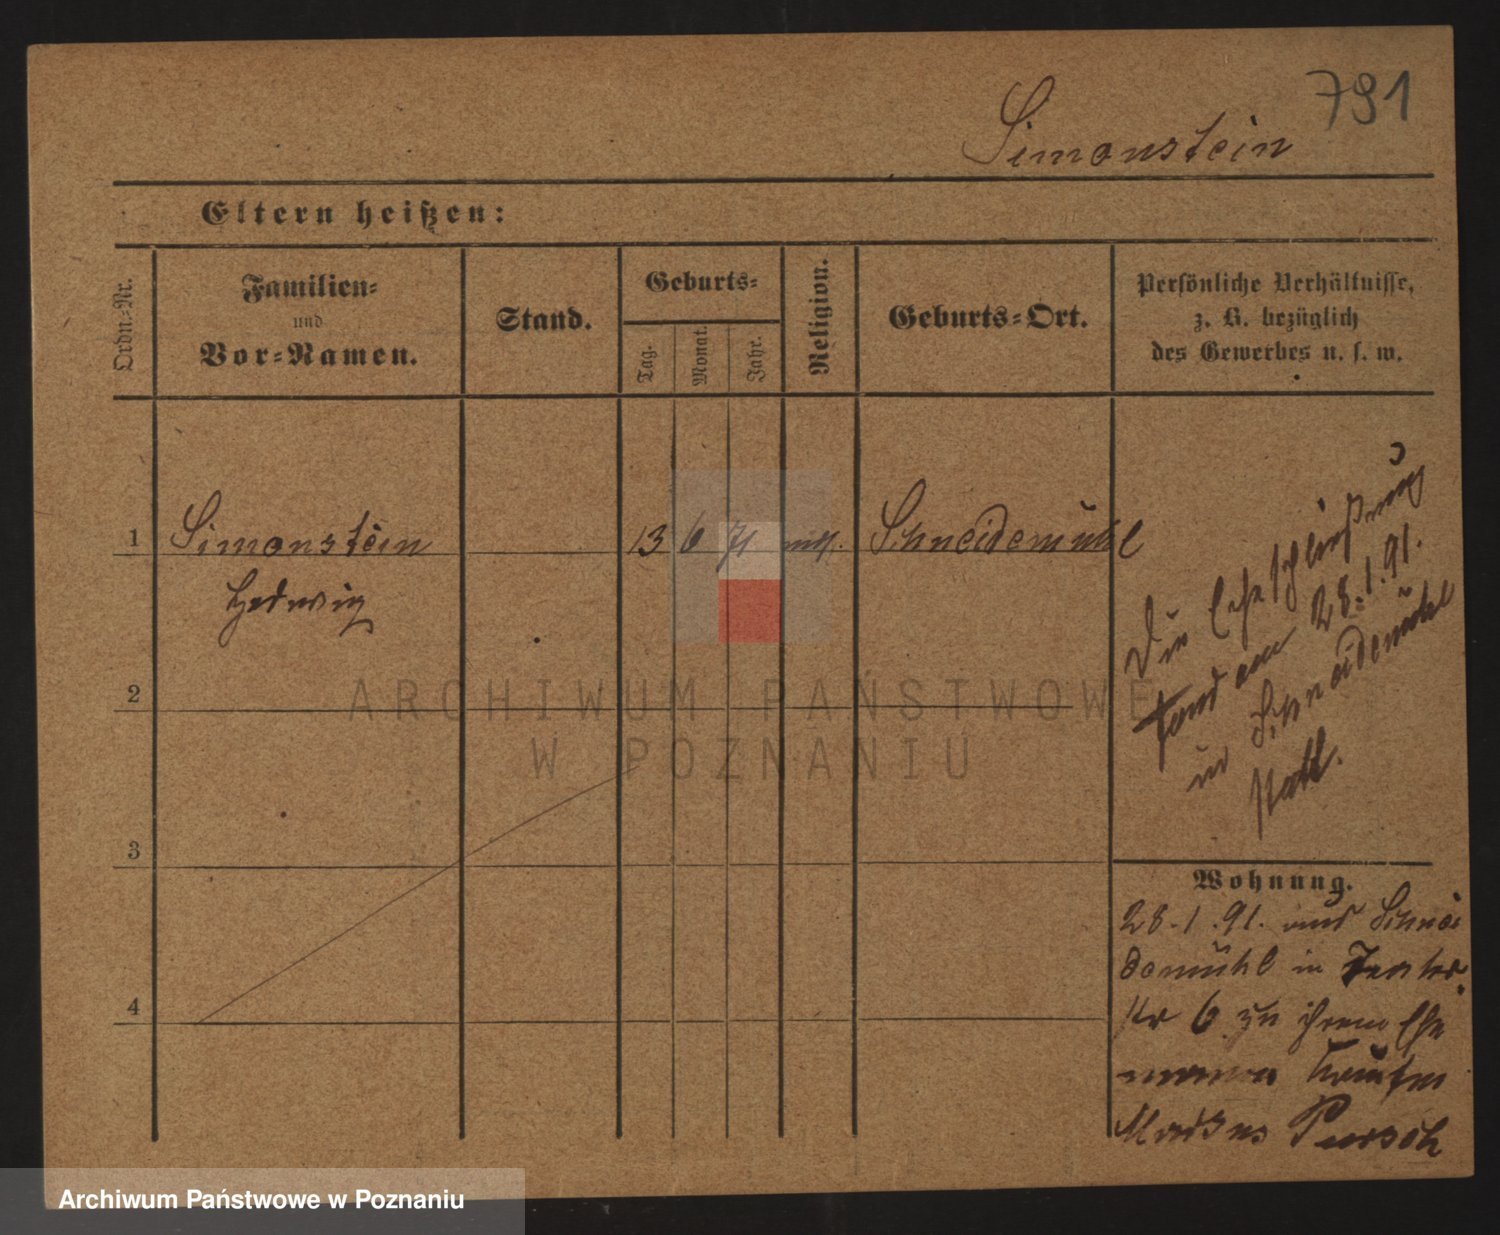 791
Simonstein
Eltern heißen:
Ordn.-Nr.
Familien-
und
Vor-Namen.
Stand.
Geburts-
Tag.
Monat.
Jahr.
Religion.
Geburts-Ort.
Persönliche Verhältnisse,
z. B. bezüglich
des Gewerbes u. s. w.
1 Simonstein 13 6 71 Schneidemühl
Hedwig
Die Eheschließung
fand am 28.1.91.
in Schneidemühl
statt.
2
3
4
Wohnung.
28.1.91. aus Schnei
demühl in
6 zu ihrem Ehe
manne Kaufm
ARCHIWUM PAŃSTWOWE
W POZNANIU
Archiwum Państwowe w Poznaniu